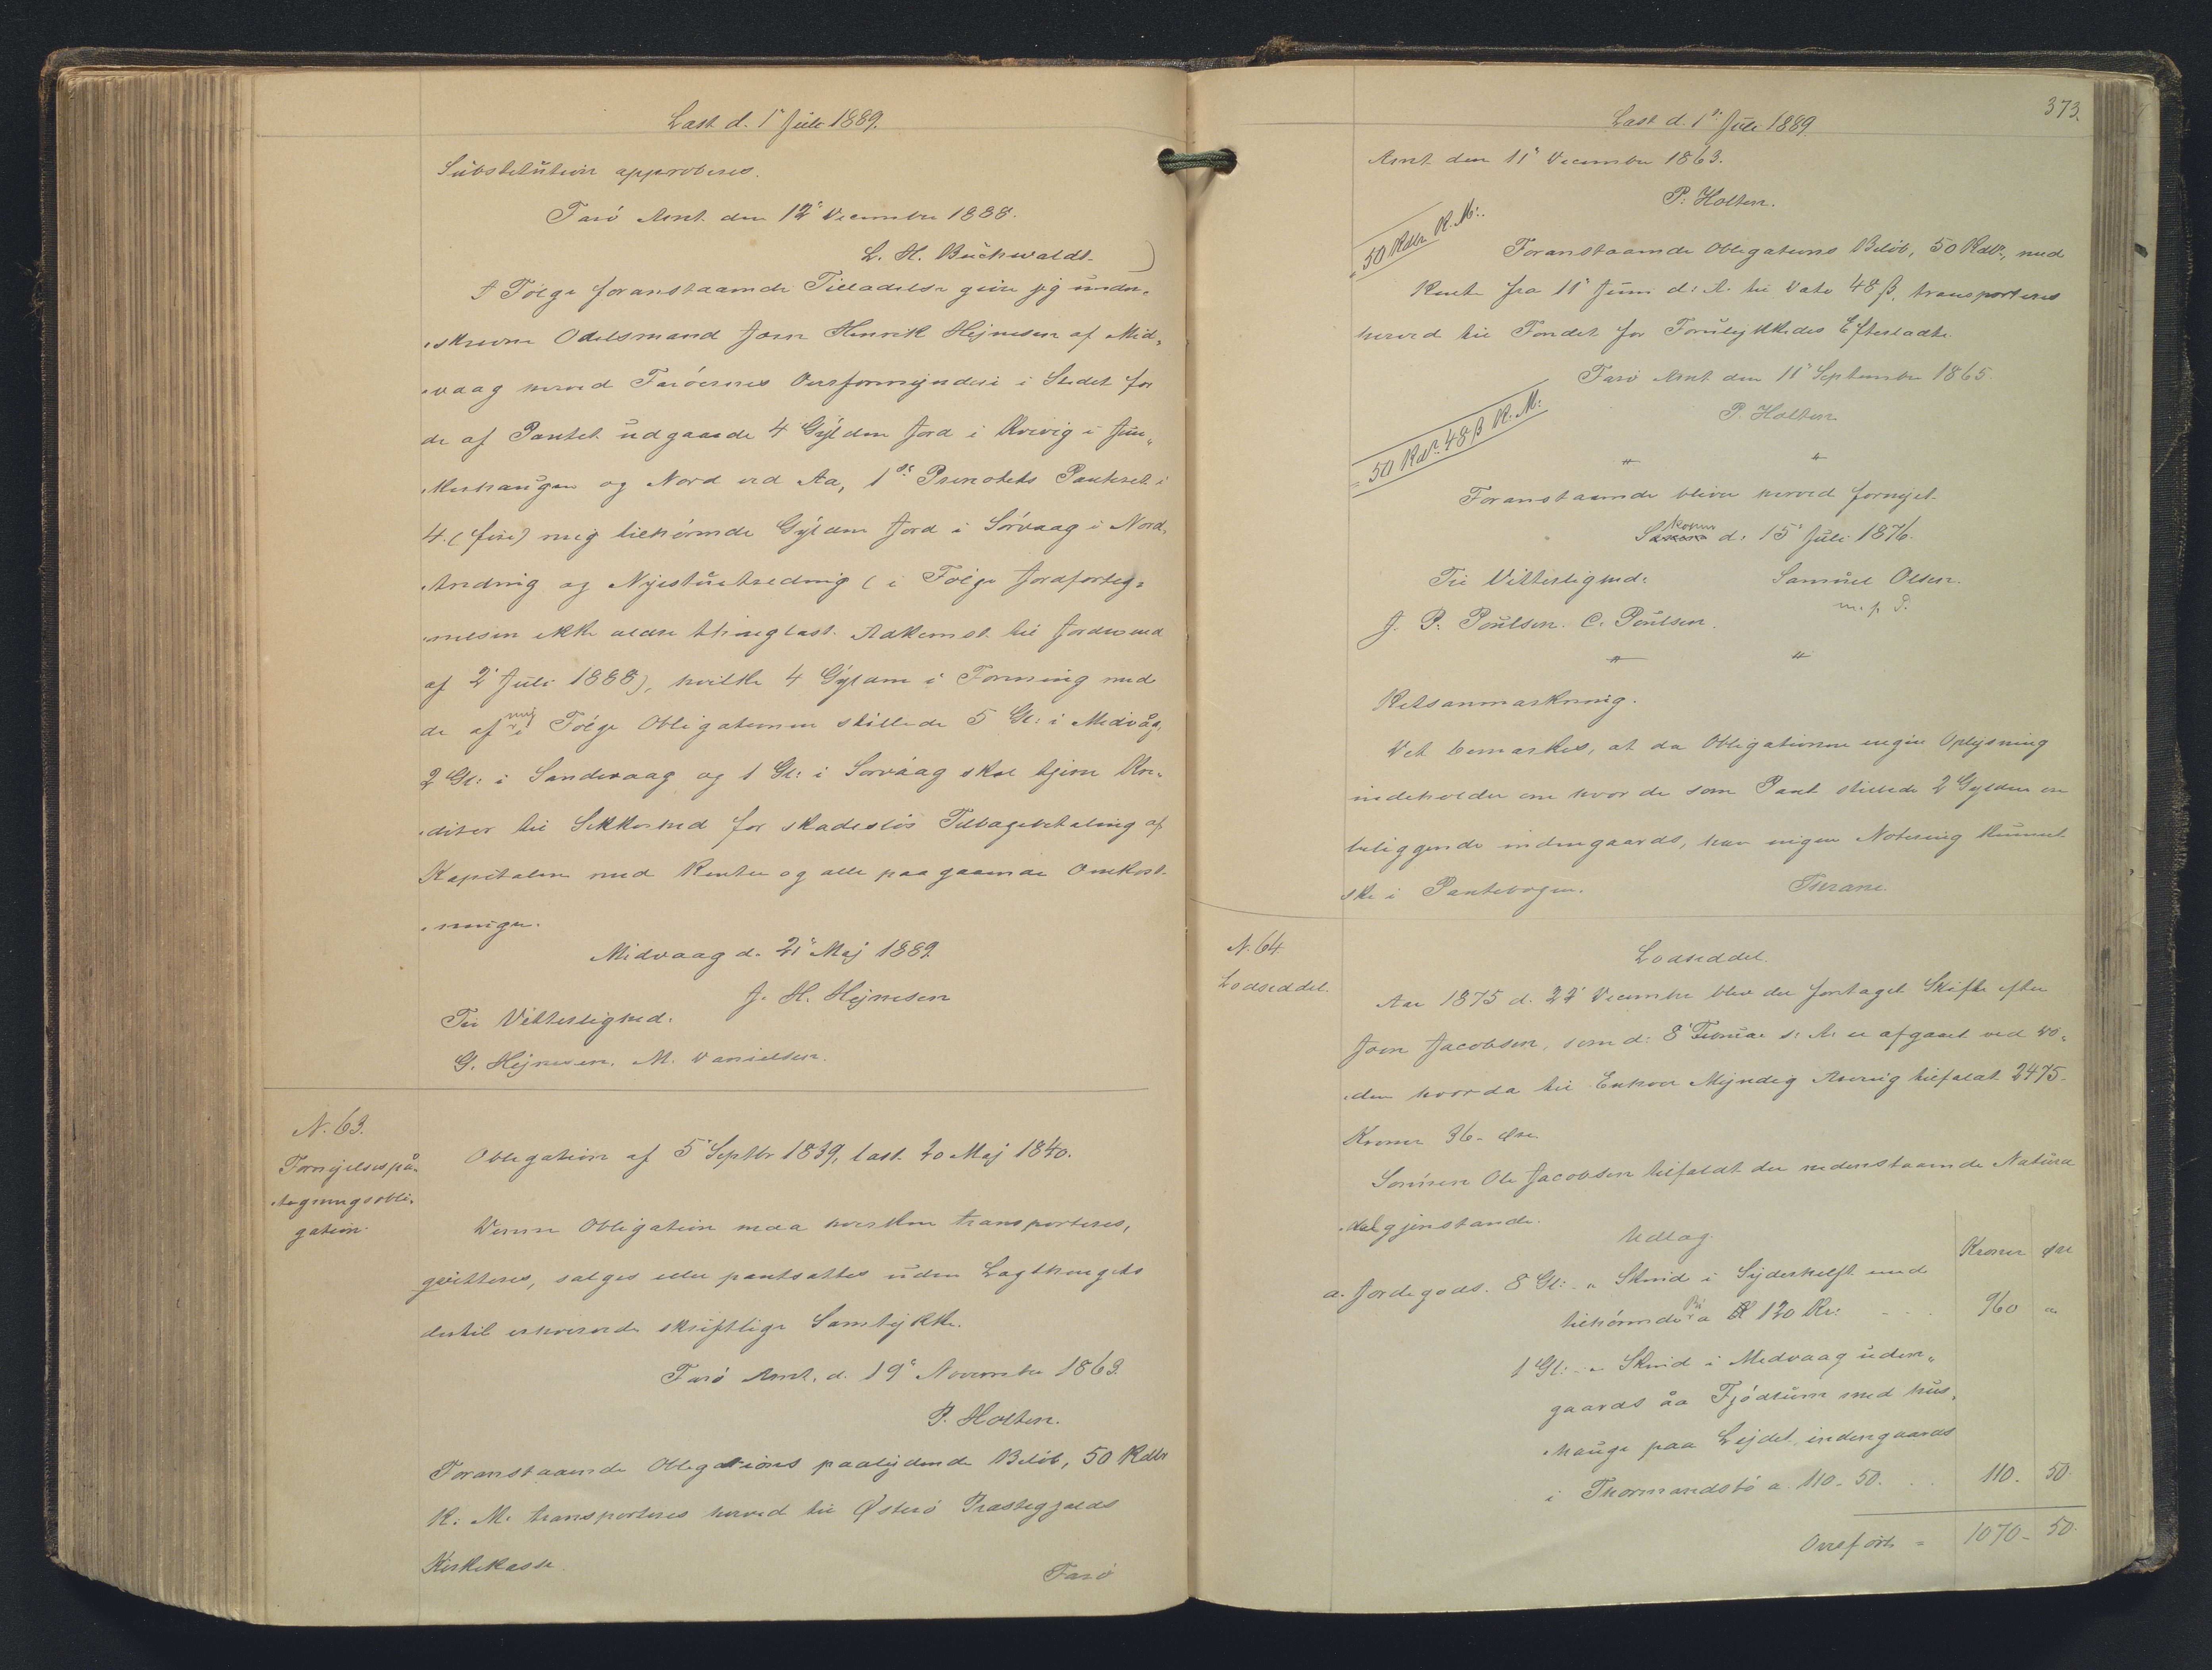 Læst d. 1' Juli 1889.
Substitution approberes.
Færö Amt den 12' December 1888.
L. H. Buchwaldt.
I Fölge foranstaaende Tilladelse giver jeg under-
skrevne Odelsmand Joen Henrik Hejnesen af Mid-
vaag herved Færöernes Overformynderi i Stedet for
de af Pantet udgaaede 4 Gylden Jord i Kvivig i Jun-
kerhaugen og Nord ved Aa, 1ste Prioritets Panteret i
4 (fire) mig tilhörende Gylden Jord i Sörvaag i Nord-
trædning og Nyestuetrædning (i Fölge Jordforteg-
nelsen ikke ældre thinglæst Adkomst til Jorden end
af 2' Juli 1888), hvilke 4 Gylden i Forening med
de af mig i Fölge Obligationen stillede 5 Gl: i Midvåg,
2 Gl: i Sandevaag og 1 Gl: i Sörvåag skal tjene Kre-
ditor til Sikkerhed for skadeslös Tilbagebetaling af
Kapitalen med Renter og alle paagaaende Omkost-
ninger.
Midvaag d. 21' Maj 1889
J. H. Hejnesen
Til Vitterlighed:
G. Hejnesen. M. Danielsen.
N. 63.
Fornyelsespå-
tegningsobli-
gation.
Obligation af 5' Septbr 1839, læst 20 Maj 1840.
Denne Obligation maa hverken transporteres,
qvitteres, sælges eller pantsættes uden Lagthingets
dertil erhvervede skriftlige Samtykke.
Færö Amt, d. 19' November 1863.
P. Holten.
Foranstaaende Obligations paalydende Belöb, 50 Rdlr
R. M. transporteres herved til Österö Præstegjælds
Kirkekasse.
Færö
373.
Læst d. 1ste Juli 1889
Amt den 11' December 1863.
P. Holten.
50 Rdlr R. M:.
Foranstaaende Obligations Belöb, 50 Rdlr, med
Rente fra 11' Juni d: A. til Dato 48 ß, transporteres
herved til Fondet for Forulykkedes Efterladte.
Færö Amt den 11' September 1865.
P. Holten
50 Rdr. 48 ß R. M:
" "
Foranstaaende bliver herved fornyet.
Skopen d: 15' Juli 1876.
Til Vitterlighed: Samuel Olsen.
m. f. P.
J. P. Poulsen. C. Poulsen.
" "
Retsanmærkning.
Det bemærkes, at da Obligationen ingen Oplysning
indeholder om hvor de som Pant stillede 2 Gylden ere
beliggende indengaards, har ingen Notering kunnet
ske i Pantebogen. Thrane.
N. 64.
Lodseddel.
Lodseddel.
Aar 1875 d. 22' December blev der foretaget Skifte efter
Joen Jacobsen, som d: 8' Februar s: A: er afgaaet ved Dö-
den hvorda til Enhver Myndig Arving tilfaldt 2475-
Kroner 36- Öre.
Sönnen Ole Jacobsen tilfaldt der nedenstaaende Natura-
delgjenstande.
Udlæg.
Kroner Öre
a. Jordegods. 8 Gl: „ Skind i Syderhelft med
tilhörende Bi a 120 Kr: 960 „
1 Gl: „ Skind i Midvaag uden-
gaards åa Fjödrum med hus-
hauge paa Lejdet, indengaards
i Thormandsbö a 110-50. 110. 50.
Overført = 1070- 50.